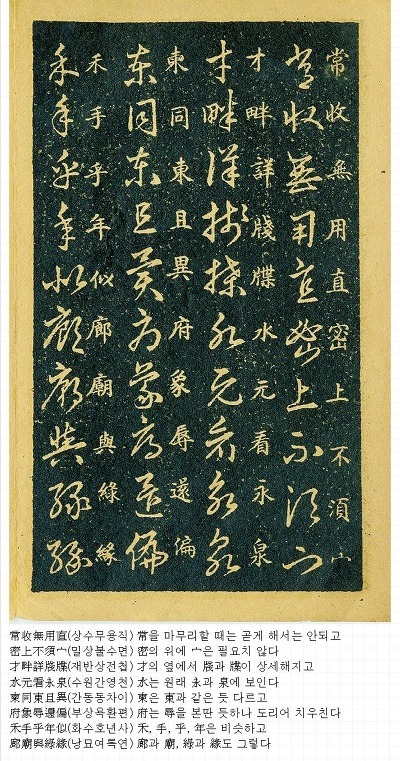 常收無用直密上不湏宀
常收無用直密上不湏宀
才畔詳牋牒水元看永泉
才畔詳牋牒水元看永泉
柬同東且異府象辱還偏
柬同東且異府象辱還偏
禾手乎年似廊廟與綠緣
禾手乎年似廊廟與綠緣
常收無用直(상수무용직) 常을 마무리할 때는 곧게 해서는 안되고
密上不須宀(밀상불수면) 密의 위에 宀은 필요치 않다
才畔詳牋牒(재반상전첩) 才의 옆에서 牋과 牒이 상세해지고
水元看永泉(수원간영천) 水는 원래 永과 泉에 보인다
柬同東且異(간동동차이) 柬은 東과 같은 듯 다르고
府象辱還偏(부상욕환편) 府는 辱을 본딴 듯하나 도리어 치우친다
禾手乎年似(화수호년사) 禾, 手, 乎, 年은 비슷하고
廊廟與綠緣(낭묘여록연) 廊과 廟, 綠과 緣도 그렇다